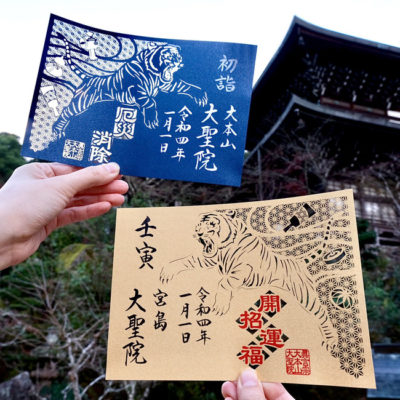 初詣
大本山
大聖院
令和四年
一月一日
厄災
消除
壬寅
宮島
大聖院
令和四年
一月一日
開運
招福